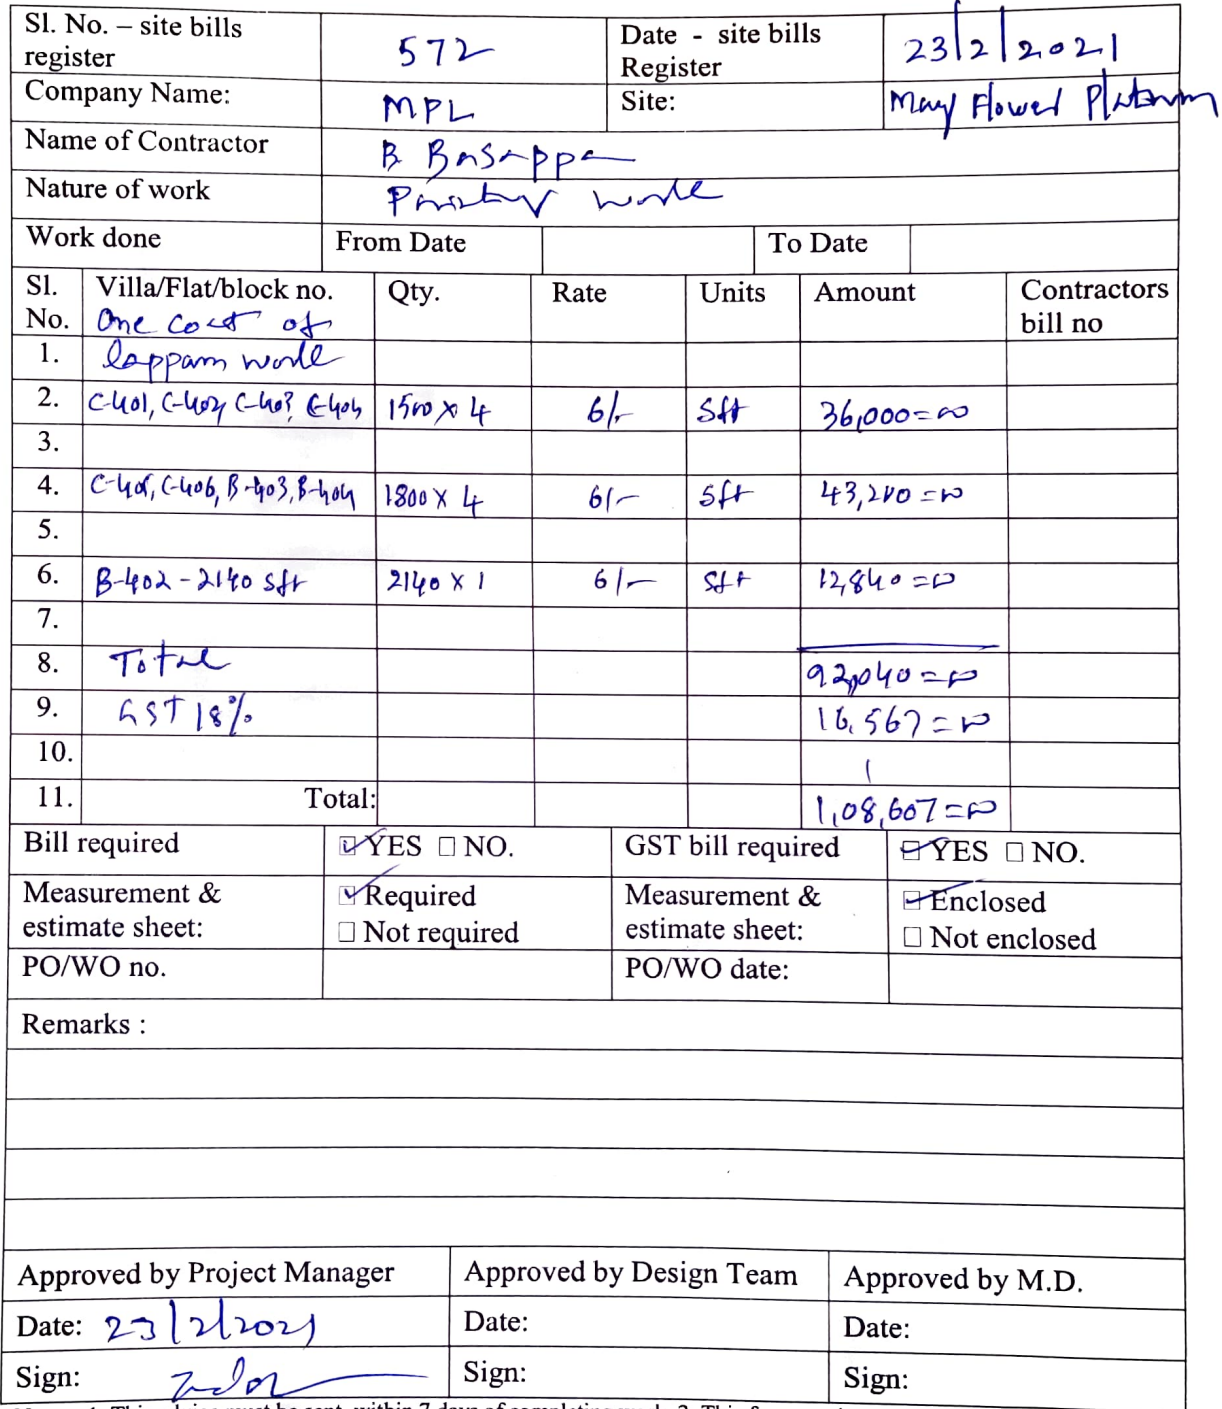 Sl. No. – site bills register 572 Date - site bills Register 23/2/2021
Company Name: MPL Site: May Flower Platinum
Name of Contractor B. Basappa
Nature of work Painting work
Work done From Date To Date
Sl. No. Villa/Flat/block no. Qty. Rate Units Amount Contractors bill no
One coat of
1. lappam work
2. C-401, C-402, C-403, C-404 1500 x 4 6/- Sft 36,000=00
3.
4. C-405, C-406, B-403, B-404 1800 x 4 6/- Sft 43,200=00
5.
6. B-402 - 2140 sft 2140 x 1 6/- Sft 12,840=00
7.
8. Total 92,040=00
9. GST 18% 16,567=00
10.
11. Total: 1,08,607=00
Bill required ☑ YES ☐ NO. GST bill required ☑ YES ☐ NO.
Measurement & estimate sheet: ☑ Required ☐ Not required Measurement & estimate sheet: ☑ Enclosed ☐ Not enclosed
PO/WO no. PO/WO date:
Remarks :
Approved by Project Manager Approved by Design Team Approved by M.D.
Date: 23/2/2021 Date: Date:
Sign: Sign: Sign: